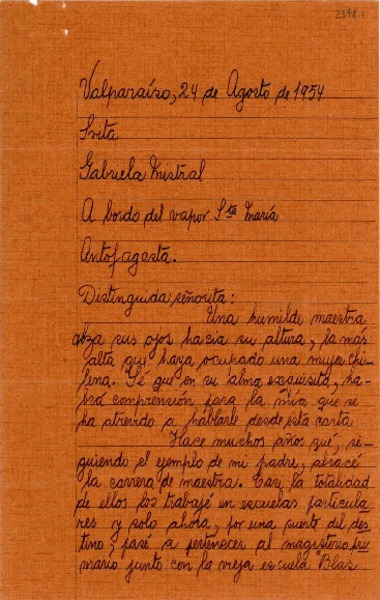 2398
Valparaíso, 24 de Agosto de 1954
Srita
Gabriela Mistral
A bordo del vapor Sta María
Antofagasta.
Distinguida señorita:
Una humilde maestra
alza sus ojos hacia su altura, la más
alta que haya ocupado una mujer chi-
lena. Sé que en su alma exquisita, ha-
brá comprensión para la mía que se
ha atrevido a hablarle desde esta carta
Hace muchos años que, si-
guiendo el ejemplo de mi padre, abracé
la carrera de maestra. Casi la totalidad
de ellos los trabajé en escuelas particula
res y solo ahora, por una suerte del des
tino, pasé a pertenecer al magisterio pri
mario junto con la vieja escuela "Blas